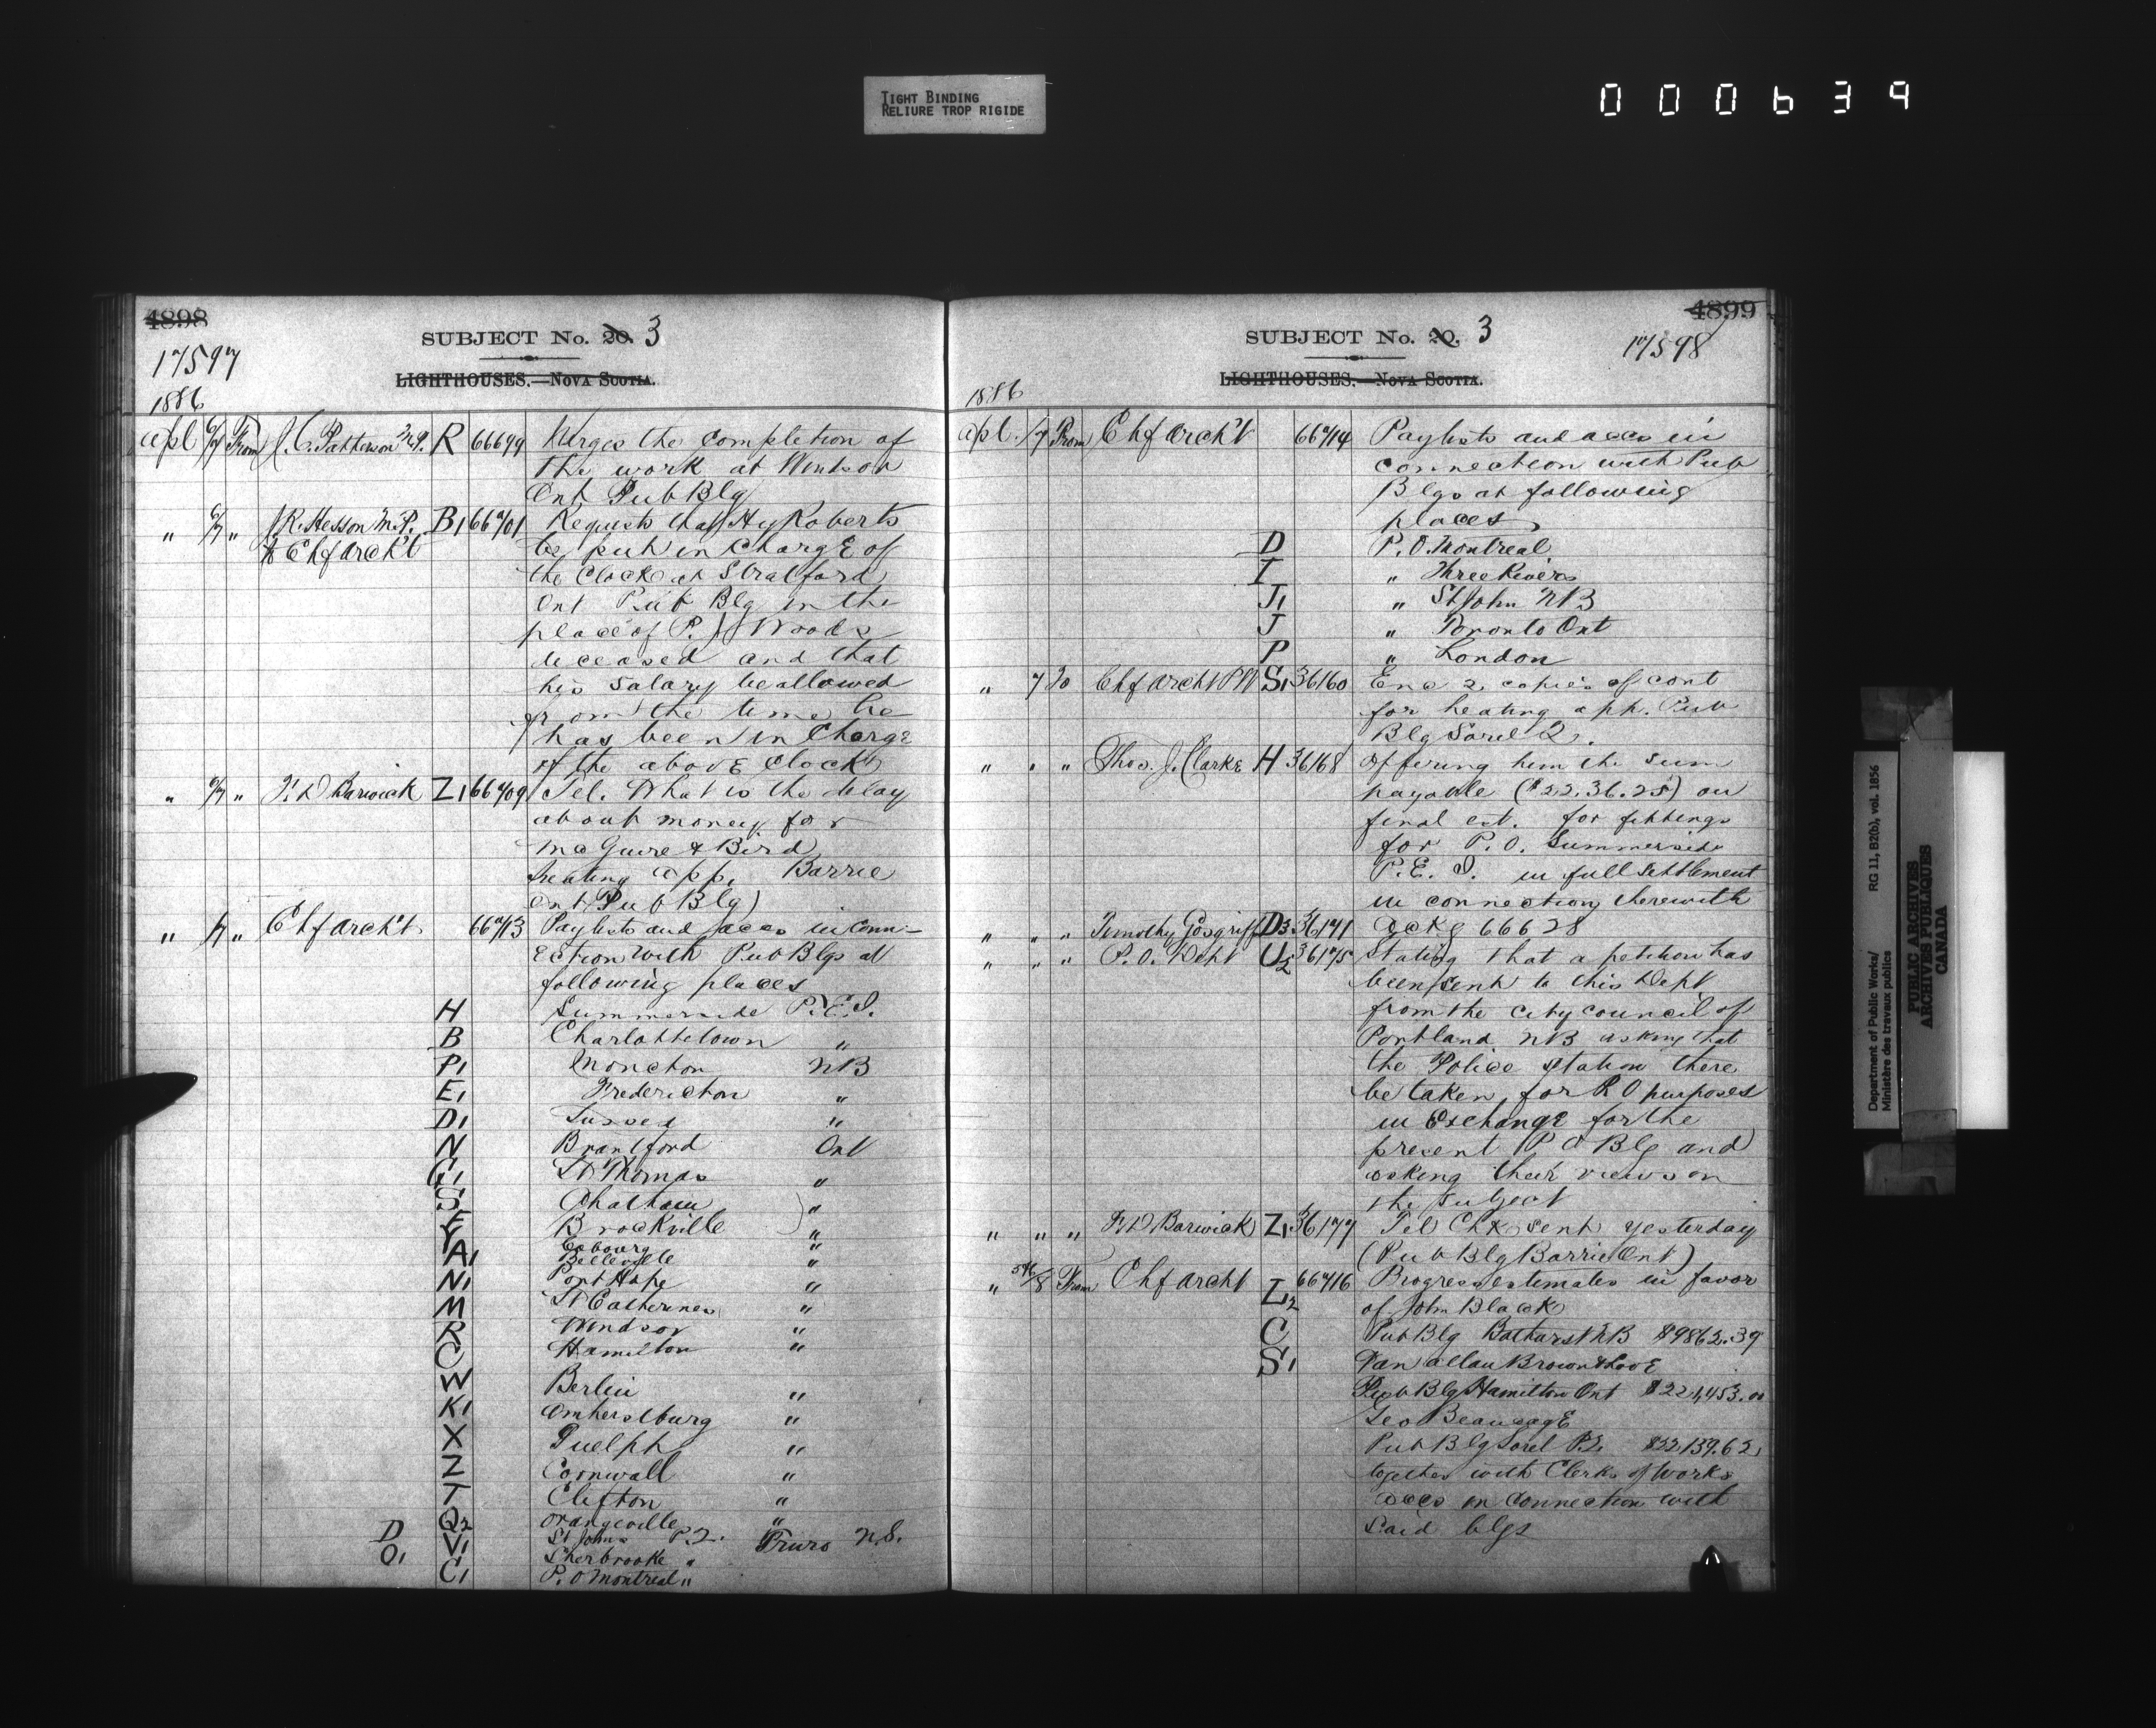 TIGHT BINDING
RELIURE TROP RIGIDE
000639
4898
SUBJECT No. 20. 3
17597
LIGHTHOUSES.—NOVA SCOTIA.
1886
Apl 6/7 From J. C. Patterson M.P. R 66699 Urges the completion of
the work at Windsor
Ont Pub Blg
" 6/7 " J R. Hesson M.P. B1 66701 Requests that Hy Roberts
& Chf Archt be put in charge of
the Clock at Stratford
Ont Pub Blg in the
place of P. J. Woods
deceased and that
his salary be allowed
from the time he
has been in charge
of the above clock
" 6/7 " F. D Barwick Z1 66709 Tel. What is the delay
about money for
McGuire & Bird
heating app. Barrie
Ont (Pub Blg)
" /7 " Chf Archt. 66713 Paylists and accs in conn-
ection with Pub Blgs at
following places
H Summerside P.E.I.
B Charlottetown "
P1 Moncton NB
E1 Fredericton "
D1 Sussex "
N Brantford Ont
G1 St Thomas "
S Chatham "
F Brockville "
Y Cobourg "
A1 Belleville "
N1 Port Hope "
M St Catherines "
R Windsor "
C Hamilton "
W Berlin "
K1 Amherstburg "
X Guelph "
Z Cornwall "
T Clifton "
Q2 Orangeville "
D V1 St Johns P.Q. Truro N.S.
O1 Sherbrooke "
C1 P.O Montreal "
4899
SUBJECT No. 20. 3
17598
LIGHTHOUSES.—NOVA SCOTIA.
1886
Apl. /7 From Chf Archt 66714 Paylists and accs in
connection with Pub
Blgs at following
places
D P.O. Montreal
I " Three Rivers
J1 " St John NB
J " Toronto Ont
P " London
" 7 To Chf Archt PW S1 36160 Enc 2 copies of cont
for heating app. Pub
Blg Sorel Q.
" " " Thos. J. Clarke H 36168 Offering him the sum
payable ($22.36.25) on
final est. for fittings
for P.O. Summerside
P.E.I. in full settlement
in connection therewith
" " " Timothy Gosgriff D3 36171 Ackg 66628
" " " P.O. Dept U2 36175 Stating that a petition has
been sent to this Dept
from the city council of
Portland NB asking that
the Police station there
be taken for P O purposes
in Exchange for the
present P O Blg and
asking their views on
the subject
" " " F D Barwick Z1 36177 Tel Chk sent yesterday
(Pub Blg Barrie Ont)
" 5th/8 From Chf Archt Z2 66716 Progress estimates in favor
of John Black
C Pub Blg Bathurst NB $9862.39
S1 Van Allan Brown & Love
Pub Blg Hamilton Ont $221,453.00
Geo Beaucage
Pub Blg Sorel P.Q. $22139.62
together with Clerks of Works
accs in connection with
said blgs
Department of Public Works/
Ministère des travaux publics
RG 11, B2(b), vol. 1856
PUBLIC ARCHIVES
ARCHIVES PUBLIQUES
CANADA